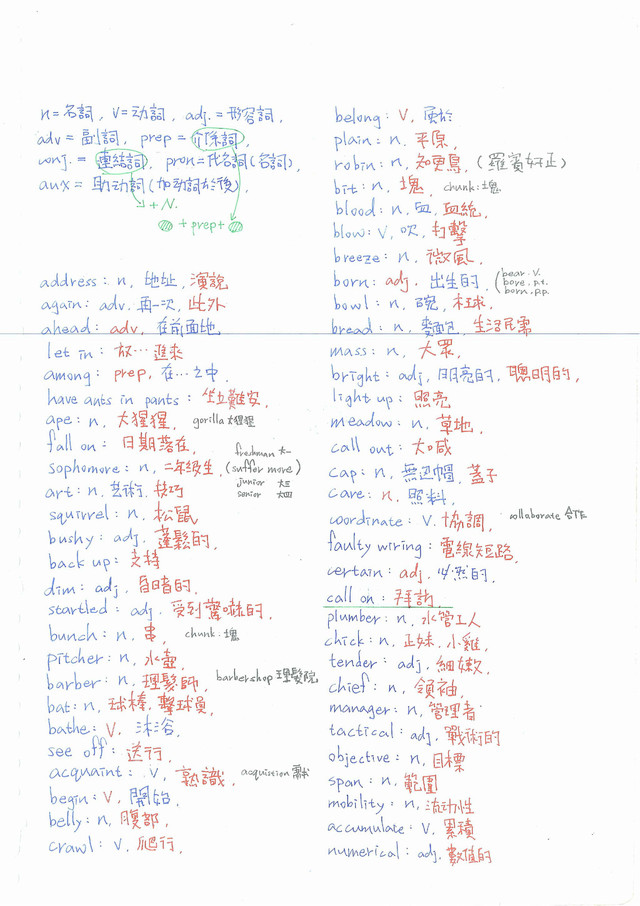 n=名詞, v=动詞, adj.=形容詞,
adv=副詞, prep=介係詞,
conj.=連結詞, pron=代名詞(名詞),
aux=助动詞(加动詞於後),
+N.
+prep+
address: n, 地址, 演說
again: adv. 再一次, 此外
ahead: adv, 在前面地
let in: 放…進來
among: prep, 在…之中.
have ants in pants: 坐立難安.
ape: n, 大猩猩, gorilla 大猩猩
fall on: 日期落在,
freshman 大一
sophomore: n, 二年級生, (suffer more)
junior 大三
senior 大四
art: n, 艺術, 技巧
squirrel: n, 松鼠
bushy: adj. 蓬鬆的.
back up: 支持
dim: adj, 昏暗的.
startled: adj. 受到驚嚇的.
bunch: n, 串, chunk: 塊
pitcher: n, 水壺,
barber: n, 理髮師, barbershop 理髮院
bat: n, 球棒, 擊球員,
bathe: V. 沐浴,
see off: 送行,
acquaint: V, 熟識,
begin: V, 開始,
belly: n, 腹部,
crawl: V. 爬行,
belong: V, 屬於
plain: n, 平原,
robin: n, 知更鳥, (羅賓好正)
bit: n, 塊, chunk: 塊
blood: n, 血, 血統,
blow: V, 吹, 打擊
breeze: n, 微風,
born: adj, 出生的, (bear. V.
bore. p.t.
born. p.p.
bowl: n, 碗, 木球,
bread: n, 麵包, 生活所需
mass: n, 大眾,
bright: adj, 明亮的, 聰明的,
light up: 照亮
meadow: n, 草地,
call out: 大喊
cap: n, 無边帽, 蓋子
care: n, 照料,
coordinate: V. 協調, collaborate 合作
faulty wiring: 電線短路,
certain: adj. 必然的.
call on: 拜訪,
plumber: n, 水管工人
chick: n, 正妹, 小雞,
tender: adj, 細嫩,
chief: n, 領袖,
manager: n, 管理者
tactical: adj, 戰術的
objective: n, 目標
span: n, 範圍
mobility: n, 流动性
accumulate: V. 累積
numerical: adj. 數值的